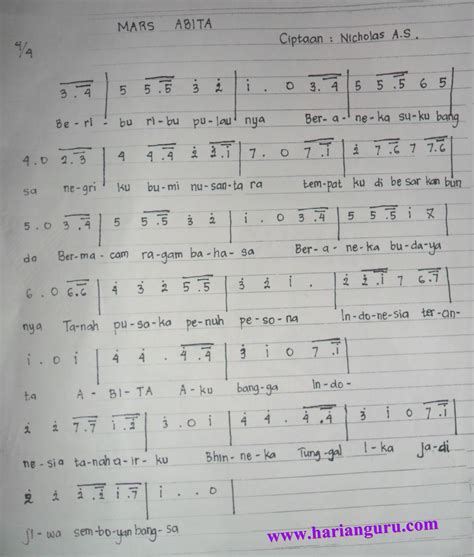 MARS ABITA
Ciptaan : Nicholas A.S.
4/4
3 . 4 | 5 5 . 5 3 2 | i . 0 3 . 4 | 5 5 . 5 6 5
Be - ri - bu ri - bu pu - lau nya Ber - a - ne - ka su - ku bang
4 . 0 2 . 3 | 4 4 . 4 2 3 . 1 | 7 . 0 7 . 1 | 2 7 . 6 7 7 . 6
sa ne - gri ku bu - mi nu - san - ta ra tem - pat ku di be sar kan bun
5 . 0 3 . 4 | 5 5 . 5 3 2 | i . 0 3 . 4 | 5 5 . 5 i 7
da Ber - ma - cam ra - gam ba - ha - sa Ber - a - ne - ka bu - da - ya
6 . 0 6 . 6 | 4 3 2 5 . 5 | 3 2 i . | 2 2 . i 7 6 . 7
nya Ta - nah pu - sa - ka pe - nuh pe - so - na In - do - ne - sia ter - cin -
i . 0 i | 4 4 . 4 . 4 | 3 i 0 7 . 1
ta A - BI - TA A - ku bang - ga In - do -
2 2 7 . 7 i . 2 | 3 . 0 i | 4 4 . 4 . 4 | 3 i 0 7 . 1
ne - sia ta - nah a - ir - ku Bhin - ne - ka Tung - gal I - ka ja - di
2 2 2 . 2 i . 7 | i . . 0
ji - wa sem - bo - yan bang - sa
www.harianguru.com